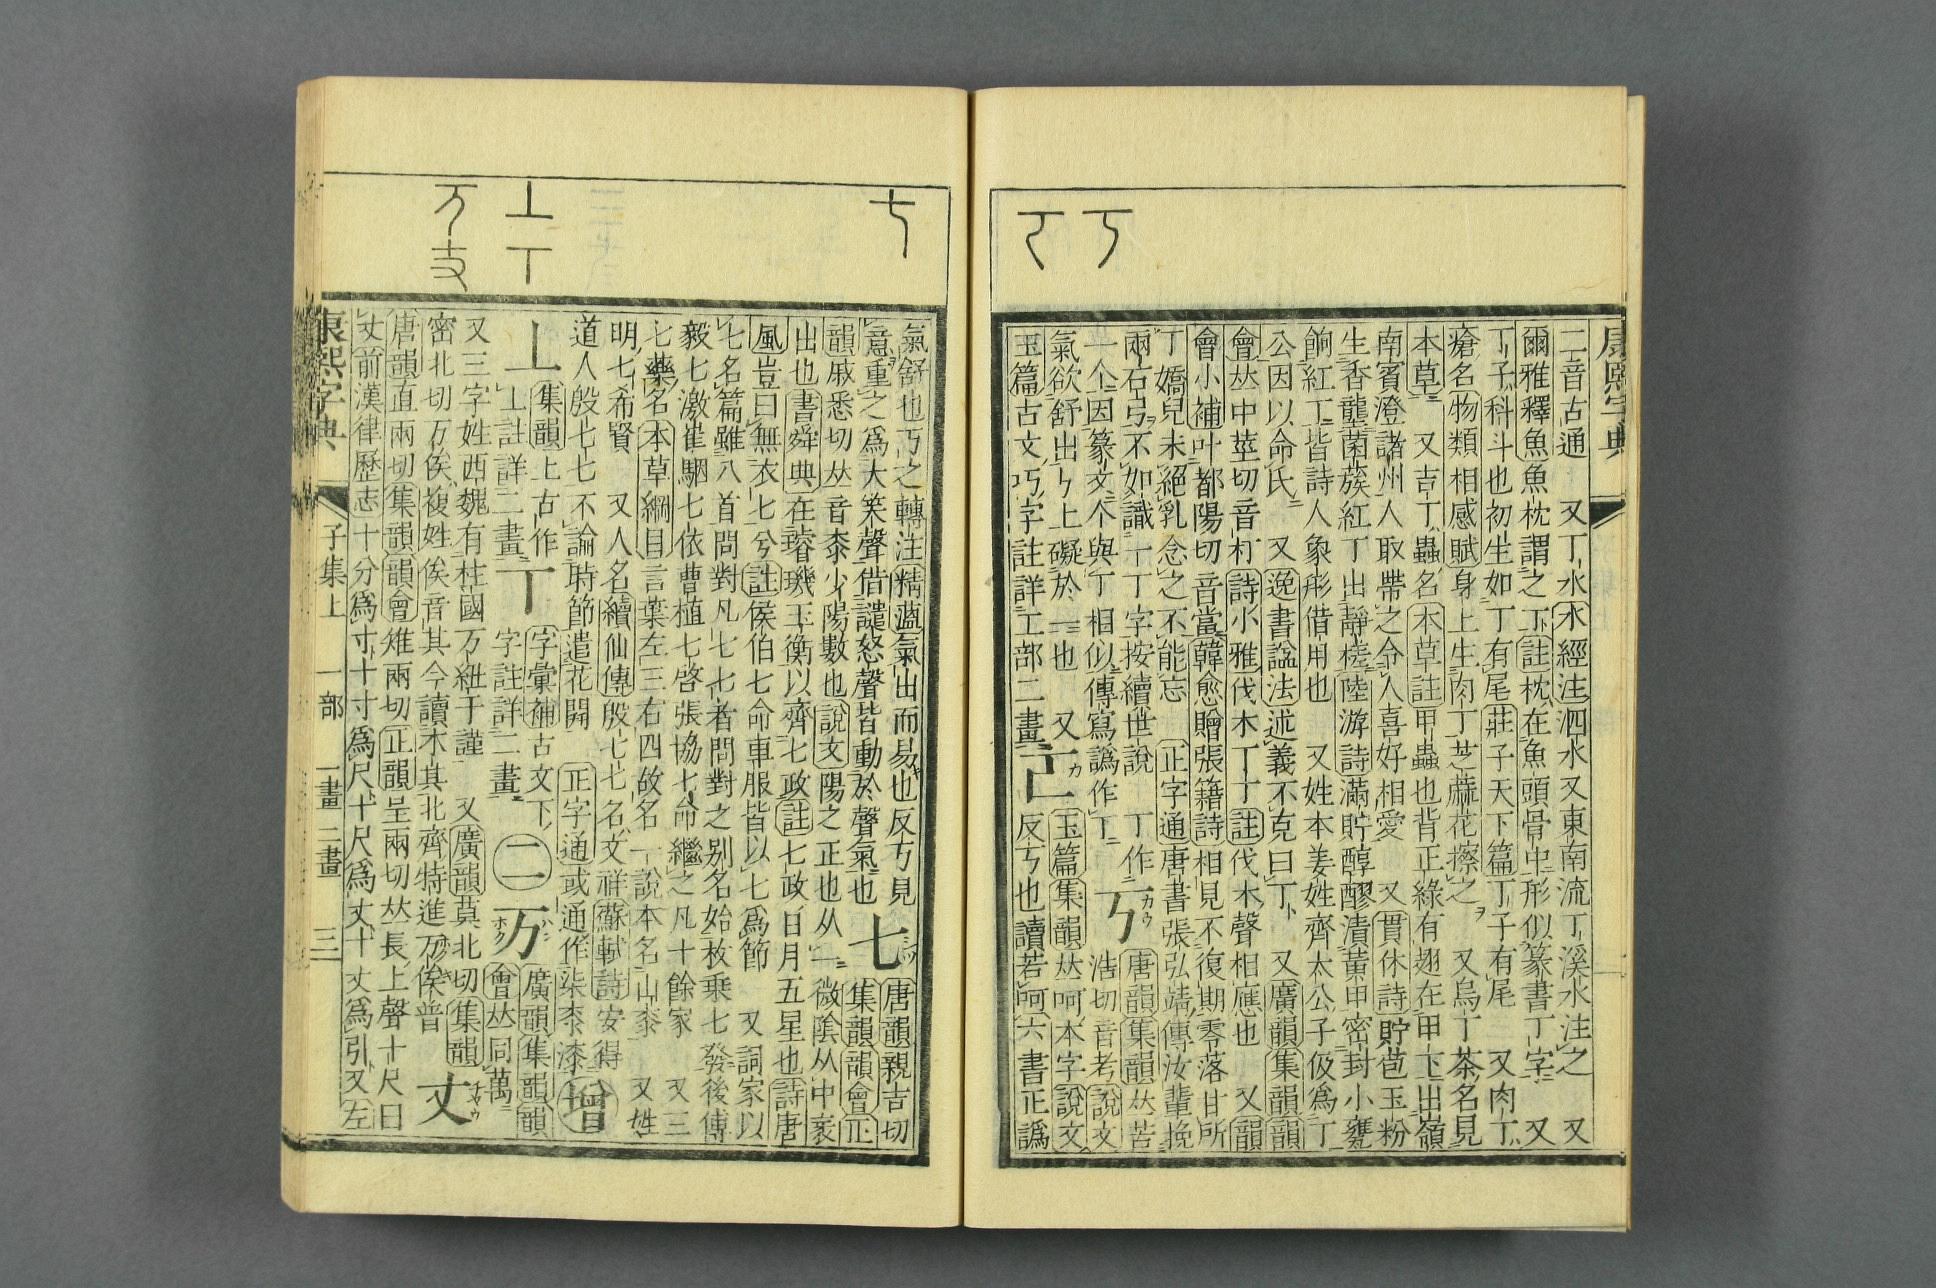 丂
康熙字典
二音古通 又丁水水經注泗水又東南流丁溪水注之 又
爾雅釋魚魚枕謂之丁註枕在魚頭骨中形似篆書丁字 又
丁子科斗也初生如丁有尾莊子天下篇丁子有尾 又肉丁
瘡名物類相感賦身上生肉丁芝蔴花擦之 又烏丁茶名見
本草 又吉丁蟲名本草註甲蟲也背正綠有翅在甲下出嶺
南賓澄諸州人取帶之令人喜好相愛 又貫休詩貯苞玉粉
生香壟菌蔟紅丁出靜橈陸游詩滿貯醇醪漬黃甲密封小甕
餉紅丁皆詩人象形借用也 又姓本姜姓齊太公子伋爲丁
公因以命氏 又逸書諡法述義不克曰丁 又廣韻集韻韻
會𠀤中莖切音朾詩小雅伐木丁丁註伐木聲相應也 又韻
會小補叶都陽切音當韓愈贈張籍詩相見不復期零落甘所
丁嬌兒未絕乳念之不能忘 正字通唐書張弘靖傳汝輩挽
兩石弓不如識一丁字按續世說 丁作
一个因篆文个與丁相似傳寫譌作丁 丂 唐韻集韻𠀤苦
浩切音考說文
氣欲舒出ㄣ上礙於一也 又 玉篇集韻𠀤呵本字說文
玉篇古文巧字註詳工部二畫 反丂也讀若呵六書正譌
七
丄丅
万𠀍
氣舒也丂之轉注精薀氣出而易也反丂見
意重之爲大笑聲借譴怒聲皆動於聲氣也 七 唐韻親吉切
集韻韻會正
韻戚悉切𠀤音桼少陽數也說文陽之正也从一微陰从中衺
出也書舜典在璿璣玉衡以齊七政註七政日月五星也詩唐
風豈曰無衣七兮註侯伯七命車服皆以七爲節 又詞家以
七名篇雖八首問對凡七七者問對之别名始枚乘七發後傅
毅七激崔駰七依曹植七啓張協七命繼之凡十餘家 又三
七藥名本草綱目言葉左三右四故名一說本名山桼 又姓
明七希賢 又人名續仙傳殷七七名文祥蘇軾詩安得
道人殷七七不論時節遣花開 正字通或通作柒桼漆 增
丄 集韻上古作
丄註詳二畫 丅 字彙補古文下
字註詳二畫 二 万 廣韻集韻韻
會𠀤同萬
又三字姓西魏有柱國万紐于謹 又廣韻莫北切集韻
密北切万俟複姓俟音其今讀木其北齊特進万俟普 丈
唐韻直兩切集韻韻會雉兩切正韻呈兩切𠀤長上聲十尺曰
丈前漢律歷志十分爲寸十寸爲尺十尺爲丈十丈爲引又左
康熙字典 子集上 一部 一畫 二畫 三